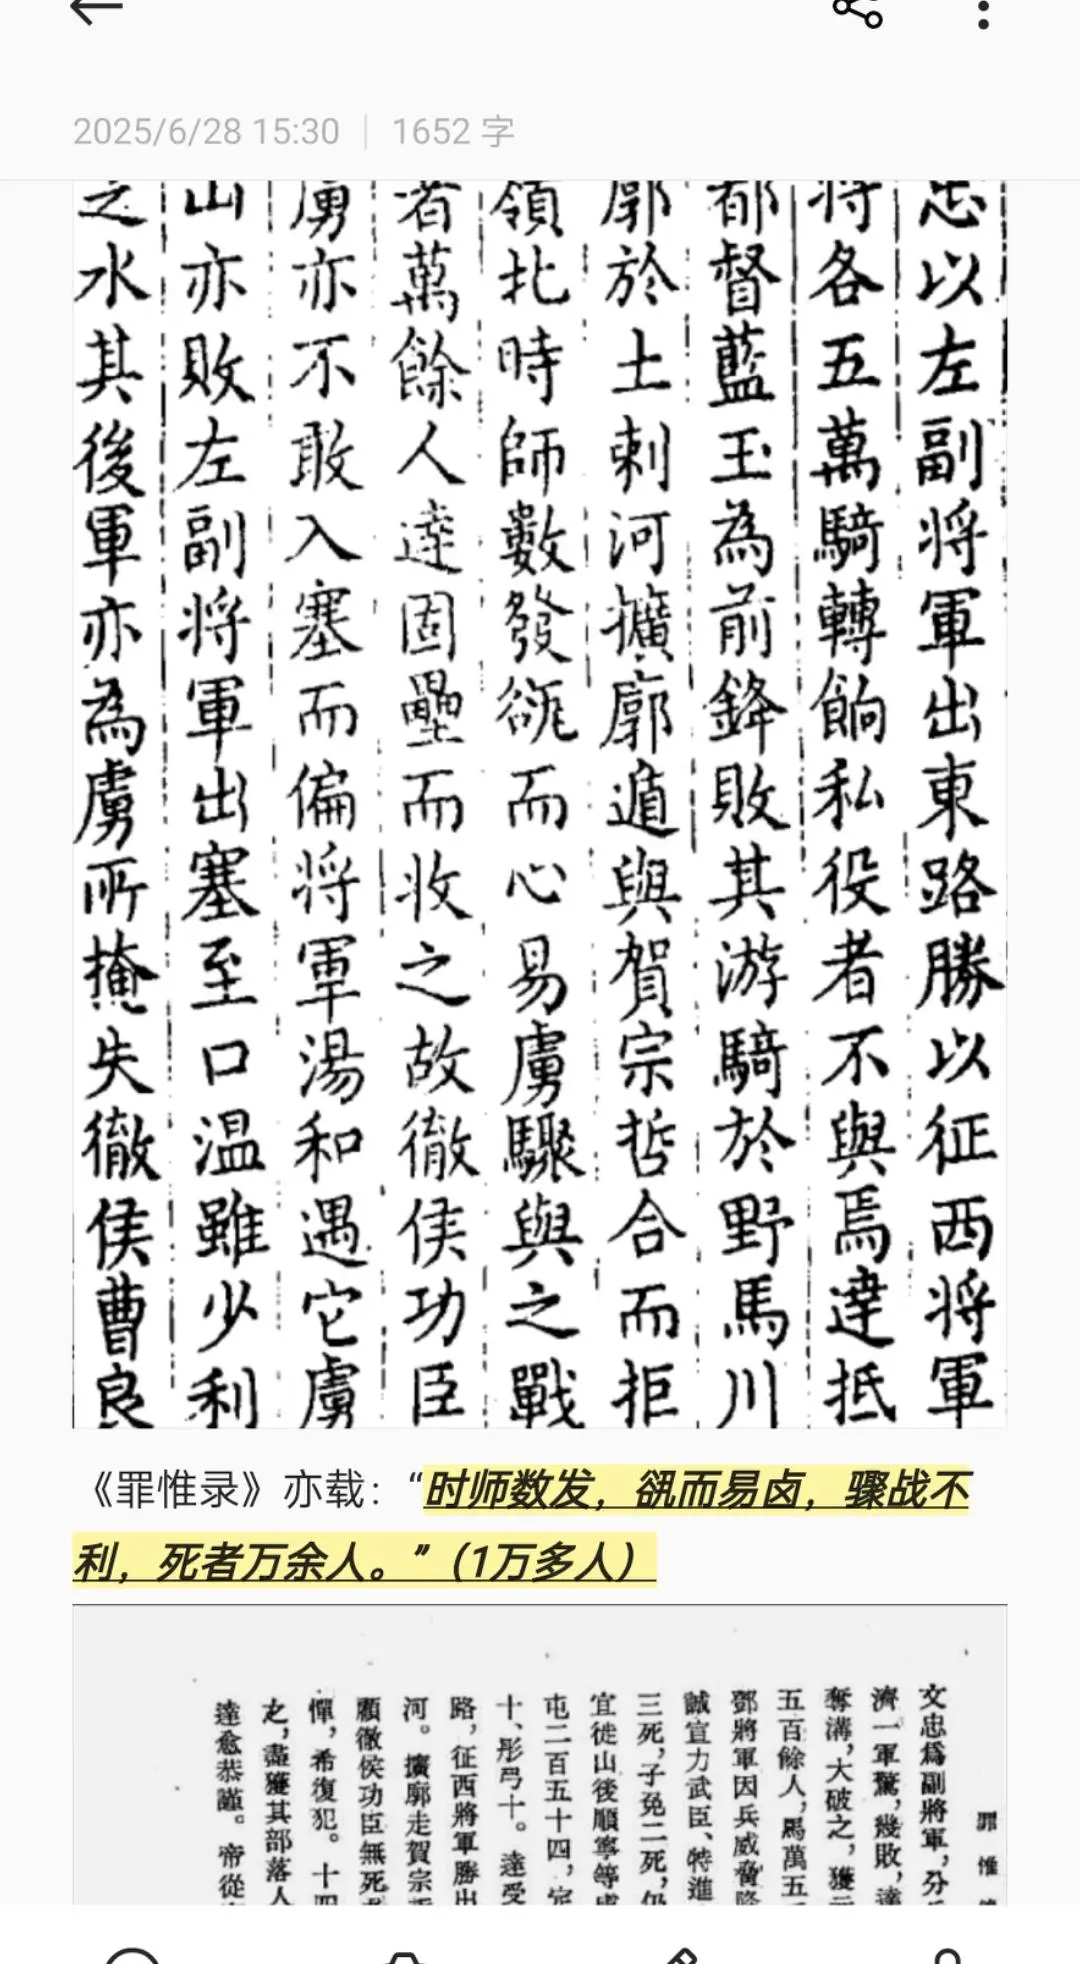 2025/6/28 15:30 | 1652 字
忠以左副将軍出東路勝以征西将軍
将各五萬騎轉餉私役者不與焉達抵
都督藍玉為前鋒敗其游騎於野馬川
廓於土剌河擴廓遁與賀宗哲合而拒
領北時師數發㰸而心易虜驟與之戰
者萬餘人達固壘而收之故徹侯功臣
虜亦不敢入塞而偏将軍湯和遇它虜
山亦敗左副将軍出塞至口温雖少利
之水其後軍亦為虜所掩失徹侯曹良
《罪惟录》亦载：“时师数发，㰸而易卤，骤战不
利，死者万余人。”（1万多人）
罪惟
文忠爲副將軍，分
濟一軍驚，幾敗，達
奪溝，大破之，獲
五百餘人，馬萬五
鄧將軍因兵威脅降
誠宣力武臣、特進
三死，子免二死，仍
宜徙山後順寧等
屯二百五十四，定
十、彤弓十。達受
路，征西將軍勝出
河。擴廓走賀宗
顧徹侯功臣無死
憚，希復犯。十四
之，盡獲其部落人
達愈恭謹。帝從